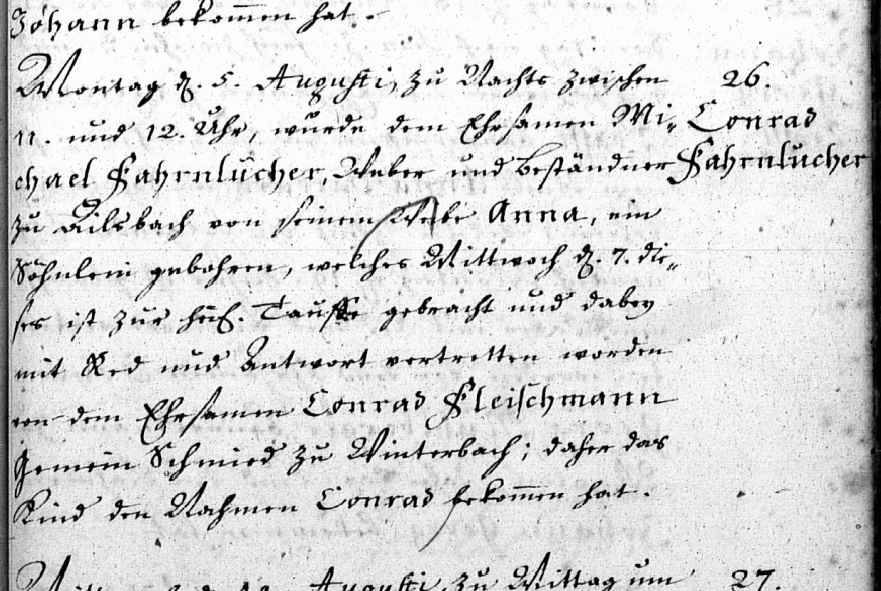 Johann bekom̄en hat.
Montag d. 5. Augusti, zu Nachts zwischen
26.
11. und 12. Uhr, wurde dem Ehrsamen Mi„
Conrad
chael Fahrnlücher, Weber und Beständner
Fahrnlücher
zu Ailsbach von seinem Weibe Anna, ein
Söhnlein gebohren, welches Mittwoch d. 7. die„
ses ist zur heil. Tauffe gebracht und dabey
mit Red und Antwort vertretten worden
von dem Ehrsamen Conrad Fleischmann
Gemein Schmied zu Winterbach; daher das
Kind den Nahmen Conrad bekom̄en hat.
Augusti, zu Mittag um
27.